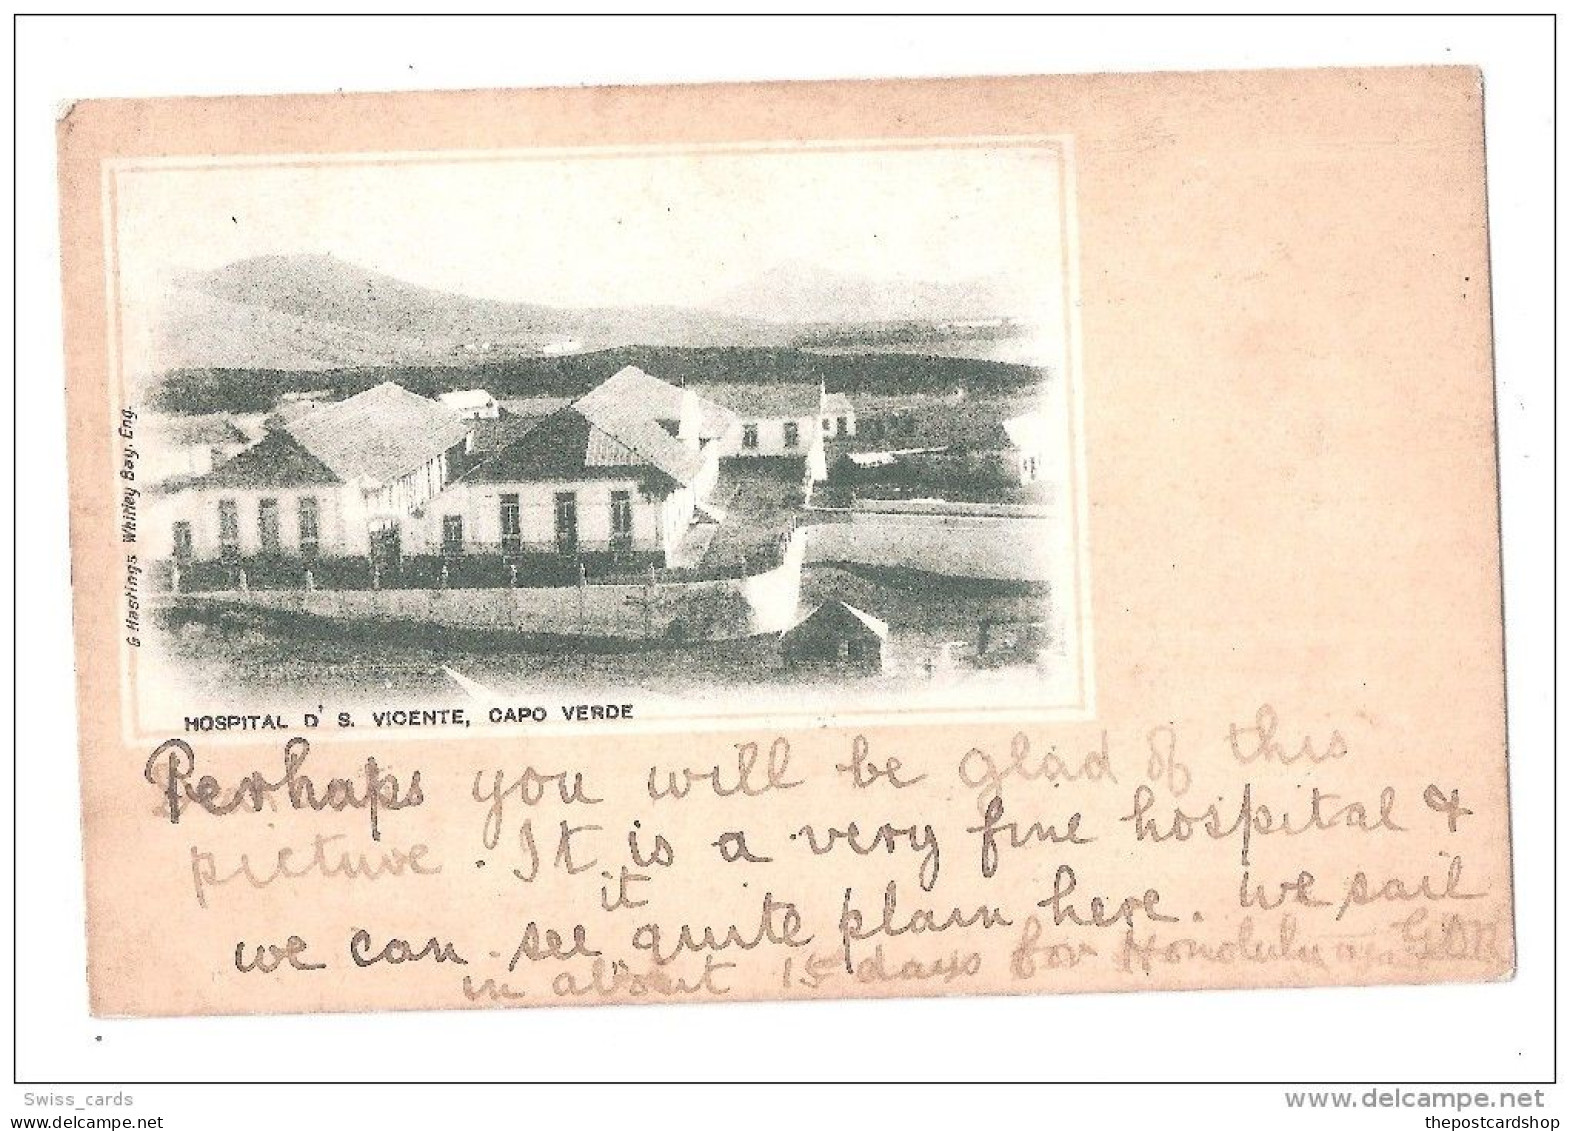 G Hastings Whitley Bay. Eng.
HOSPITAL D' S. VICENTE, CAPO VERDE
Perhaps you will be glad of this
picture. It is a very fine hospital &
it
we can see quite plain here. We sail
in about 15 days for Honolulu
Swiss_cards
www.delcampe.net
thepostcardshop